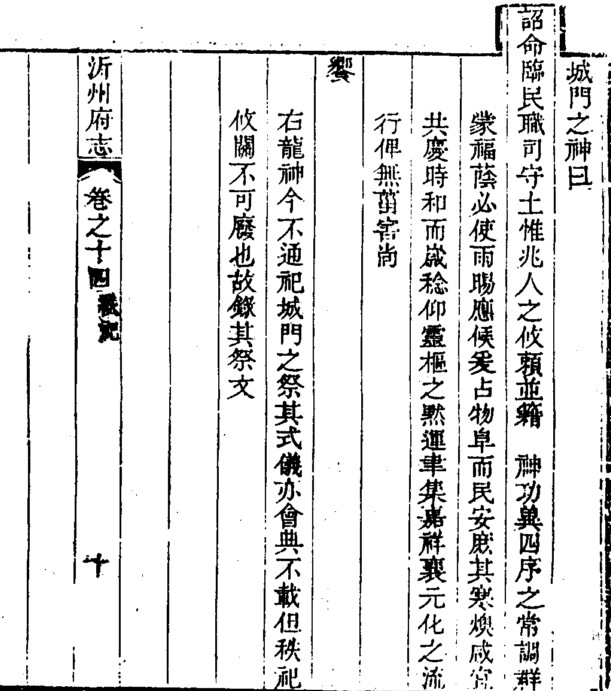 城門之神曰
詔命臨民職司守土惟兆人之攸賴並藉　神功兾四序之常調群
蒙福蔭必使雨暘應候爰占物阜而民安庶其寒燠咸宜
共慶時和而歲稔仰靈樞之默運聿集嘉祥襄元化之流
行俾無菑害尚
饗
右龍神今不通祀城門之祭其式儀亦會典不載但秩祀
攸關不可廢也故錄其祭文
沂州府志　卷之十四　秩祀　十